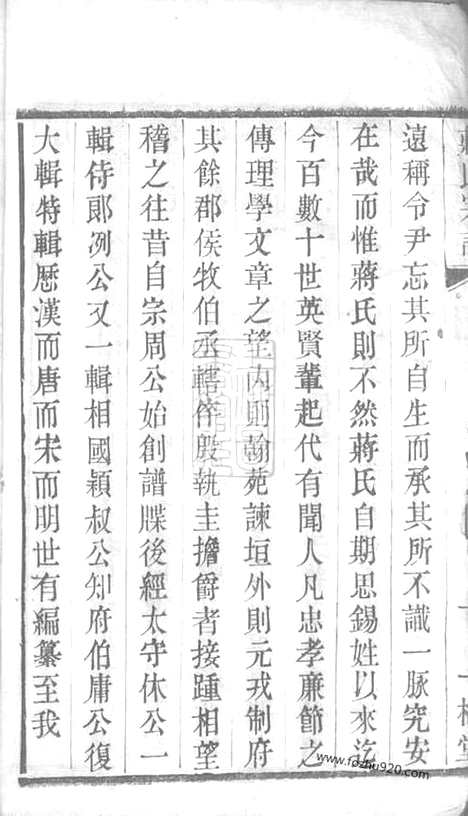 遠稱令尹忘其所自生而承其所不識一脉究安
在哉而惟蔣氏則不然蔣氏自期思錫姓以來迄
今百數十世英賢輩起代有聞人凡忠孝廉節之
傳理學文章之望內則翰苑諫垣外則元戎制府
其餘郡侯牧伯丞轄倅殷執圭擔爵者接踵相望
稽之往昔自宗周公始創譜牒後經太守休公一
輯侍郎冽公又一輯相國穎叔公知府伯庸公復
大輯特輯歷漢而唐而宋而明世有編纂至我
www.fozhu920.com